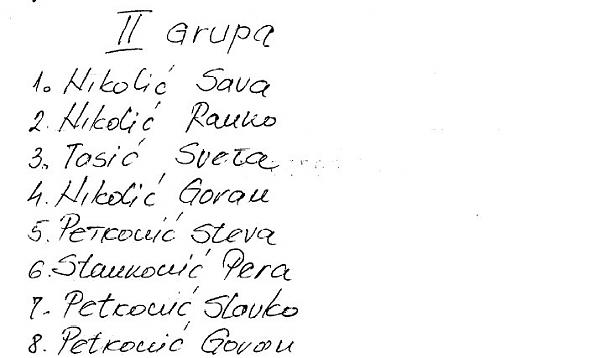 II Grupa
1. Nikolić Sava
2. Nikolić Ranko
3. Tasić Sveta
4. Nikolić Goran
5. Petković Steva
6. Stanković Pera
7. Petković Slavko
8. Petković Goran